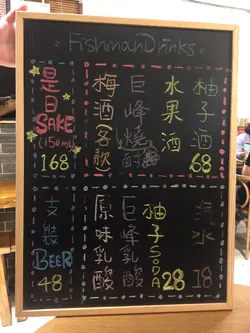 FishmanDrinks
是日
SAKE
(150ml)
168
梅酒客飲
巨峰燒酎
水果酒
柚子酒
68
支裝
BEER
48
原味乳酸
巨峰乳酸
柚子SODA
28
汽水
18